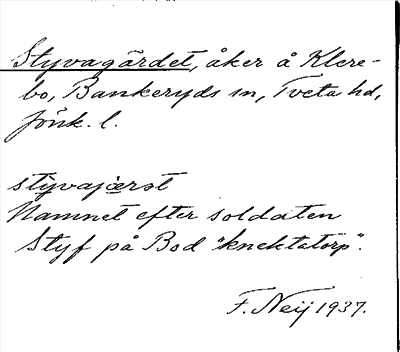 Styvagärdet, åker å Klere-
bo, Bankeryds sn, Tveta hd,
Jönk. l.
styvajærət
Namnet efter soldaten
Styf på Bod "knektatorp".
F. Neij 1937.